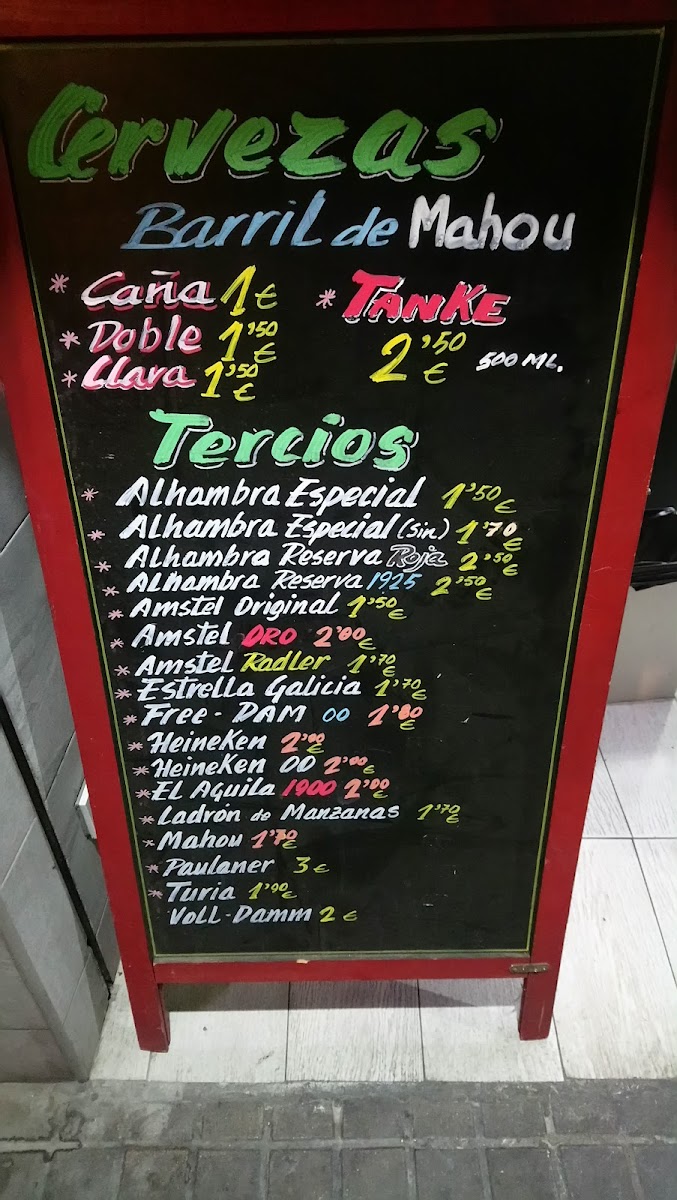 Cervezas
Barril de Mahou
* Caña 1€
* Doble 1'50 €
* Clara 1'50 €
* TANKE
2'50 € 500 ML.
Tercios
* Alhambra Especial 1'50 €
* Alhambra Especial (Sin) 1'70 €
* Alhambra Reserva Roja 2'50 €
* Alhambra Reserva 1925 2'50 €
* Amstel Original 1'50 €
* Amstel ORO 2'00 €
* Amstel Radler 1'70 €
* Estrella Galicia 1'70 €
* Free-DAM 00 1'80 €
* HeineKen 2'00 €
* HeineKen 00 2'00 €
* EL Aguila 1900 2'00 €
* Ladrón de Manzanas 1'70 €
* Mahou €
* Paulaner 3 €
* Turia 1'90 €
VOLL-Damm 2 €